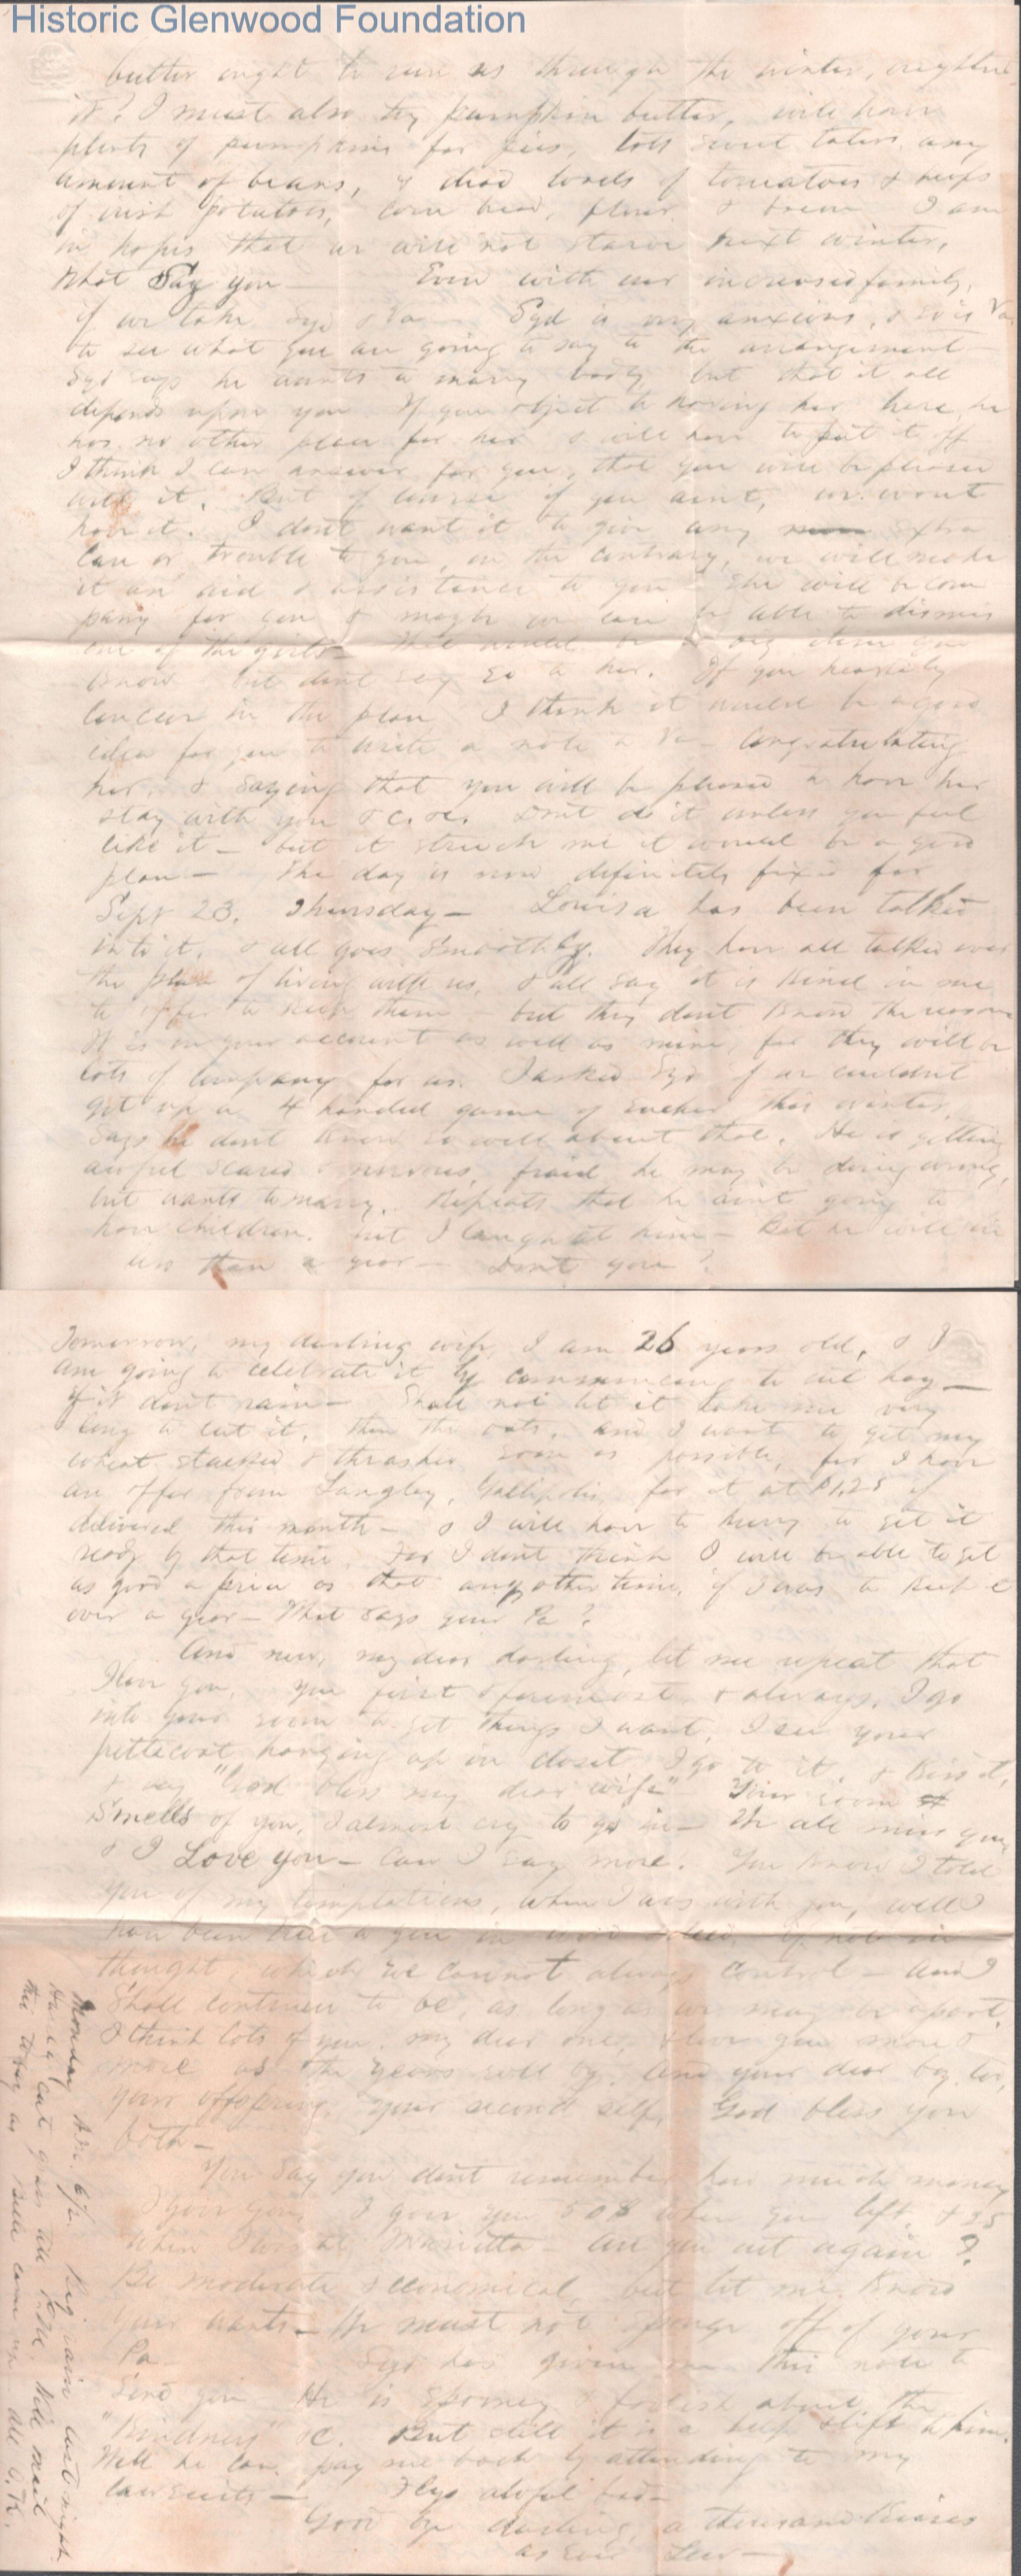 Historic Glenwood Foundation
butter ought to run us through the winter, oughtn't
it? I must also try pumpkin butter, will have
plenty of pumpkins for pies, lots sweet taters, any
amount of beans, & dead loads of tomatoes & heaps
of irish potatoes, corn bread, flour & bacon I am
in hopes that we will not starve next winter,
What Say you — Even with our increased family,
if we take Syd & Va — Syd is very anxious, & so is Va
to see what you are going to say to the arrangement —
Syd says he wants to marry badly but that it all
depends upon you If you object to having her here, he
has no other place for her & will have to put it off
I think I can answer for you, that you will be pleased
with it. But of course if you aint, we wont
have it. I dont want it to give any extra
care or trouble to you, on the contrary, we will make
it an aid & assistance to you — She will be com
pany for you & maybe we can be able to dismiss
one of the girls — That would be a big item you
know but dont say so to her. If you heartily
concur in the plan I think it would be a good
idea for you to write a note to Va — Congratulating
her, & saying that you will be pleased to have her
stay with you &c. &c. Dont do it unless you feel
like it — but it struck me it would be a good
plan — The day is now definitely fixed for
Sept 23. Thursday — Louisa has been talked
into it, & all goes smoothly. They have all talked over
the plan of living with us, & all say it is kind in me
to offer to keep them — but they dont know the reason
It is on your account as well as mine, for they will be
lots of company for us. I asked Syd if we couldnt
get up a 4 handed game of eucher this winter,
Says he dont know so well about that. He is getting
awful scared & nervous, fraid he may be doing wrong,
but wants to marry. Repeats that he aint going to
have children. but I laugh at him — Bet he will in
less than a year — Dont you?
Tomorrow, my darling wife, I am 26 years old, & I
am going to celebrate it by commencing to cut hay —
if it dont rain — Shall not let it take me very
long to cut it. then the oats, and I want to get my
wheat stacked & thrashed soon as possible, for I have
an offer from Langley, Gallipolis, for it at $1.25 if
delivered this month — & I will have to hurry to get it
ready by that time. For I dont think I will be able to get
as good a price as that any other time, if I was to keep it
over a year — What says your Pa?
And now, my dear darling, let me repeat that
I love you. You first & foremost & always. I go
into your room to get things I want, I see your
petticoat hanging up in closet I go to it, & kiss it,
& say "God bless my dear wife" Your room
Smells of you, I almost cry to go in — We all miss you
& I Love you — Can I say more. You know I told
you of my temptations, when I was with you, well I
have been true to you in word & deed, if not in
thought, which we cannot always control — And I
shall continue to be, as long as we may be apart.
I think lots of you, my dear one, & love you more &
more as the years roll by. And your dear boy too,
your offspring, your second self, God bless you
both —
You say you dont remember how much money
I gave you, I gave you 50$ when you left, & 25
when I was at Marietta — Are you out again?
Be moderate & economical, but let me know
your wants — We must not sponge off of your
Pa — Syd has given me this note to
send you — He is & foolish about the
"Kindness" &c. But still it is a help & lift to him.
Well he can pay me back by attending to my
lawsuits — Flys awful bad —
Good bye darling, a thousand kisses
as ever
Monday A.M. 6½. Big rain last night,
cut grass till Will mail
this today as come up all O.K.